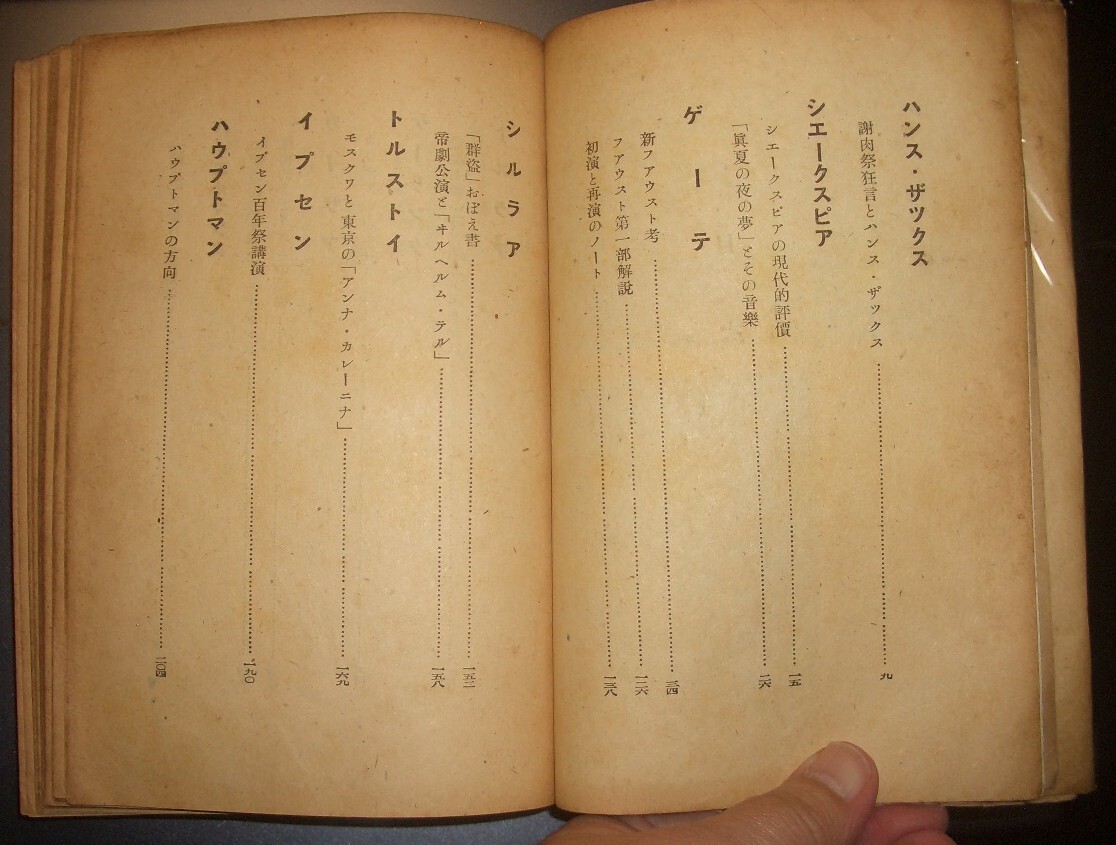 ハンス・ザツクス
謝肉祭狂言とハンス・ザツクス……九
シエークスピア
シエークスピアの現代的評價……一五
「眞夏の夜の夢」とその音樂……二六
ゲーテ
新フアウスト考……三四
フアウスト第一部解説……一二六
初演と再演のノート……一三八
シルラア
「群盜」おぼえ書……一五二
帝劇公演と「ヰルヘルム・テル」……一五八
トルストイ
モスクワと東京の「アンナ・カレーニナ」……一六九
イプセン
イプセン百年祭講演……一九〇
ハウプトマン
ハウプトマンの方向……二〇四